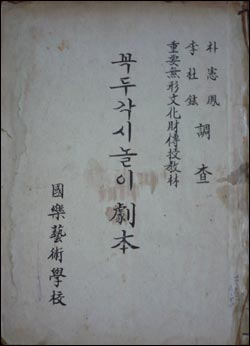 朴憲鳳
李杜鉉 調査
重要無形文化財傳授教材
꼭두각시놀이 劇本
國樂藝術學校